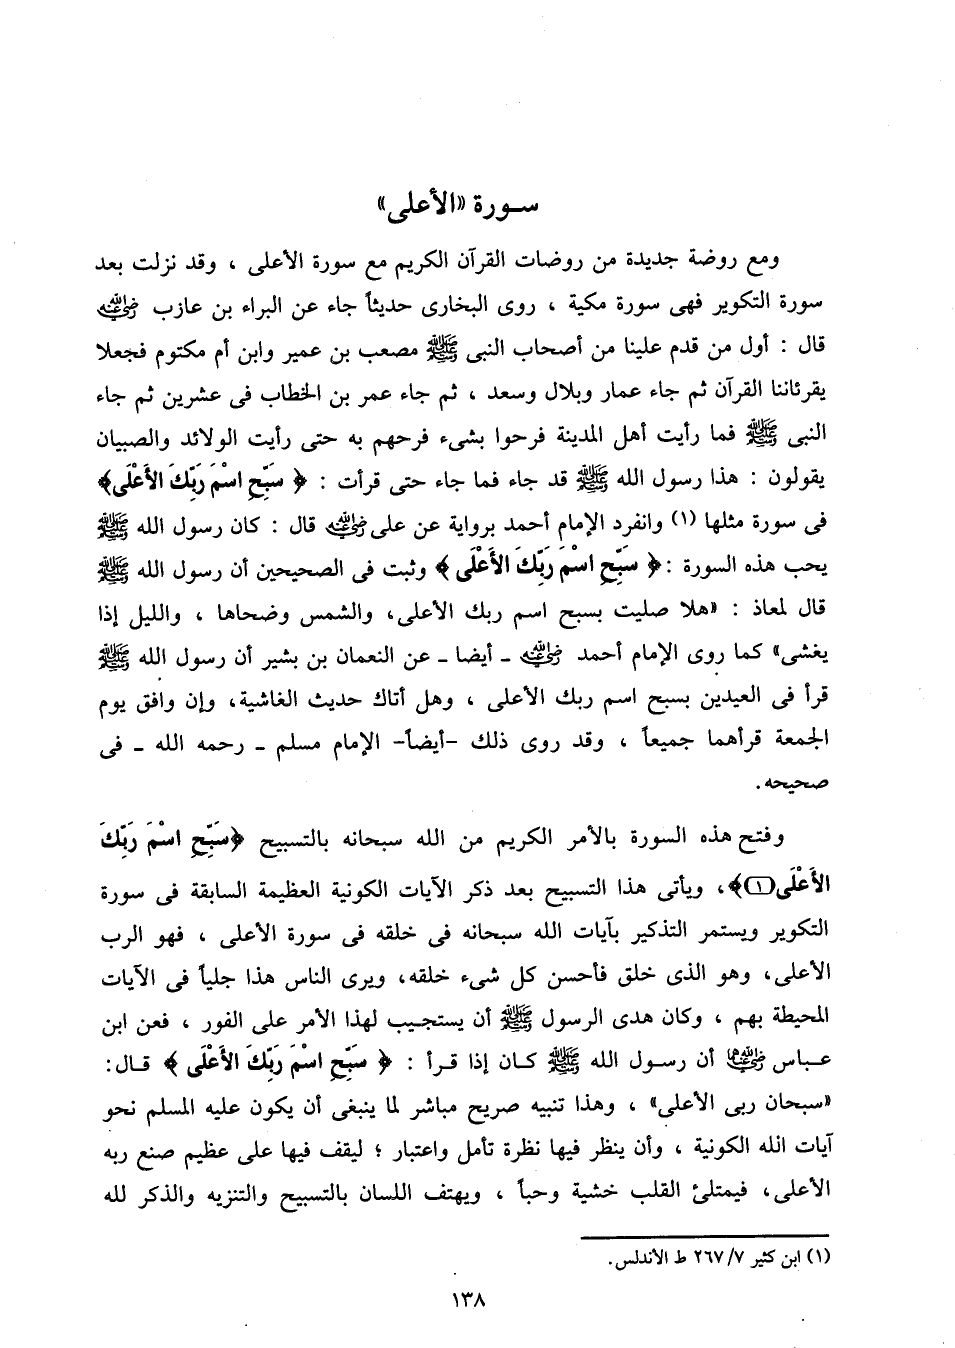 سـورة «الأعلى»
ومع روضة جديدة من روضات القرآن الكريم مع سورة الأعلى ، وقد نزلت بعد
سورة التكوير فهى سورة مكية ، روى البخارى حديثاً جاء عن البراء بن عازب رضي الله عنه
قال : أول من قدم علينا من أصحاب النبى ﷺ مصعب بن عمير وابن أم مكتوم فجعلا
يقرئاننا القرآن ثم جاء عمار وبلال وسعد ، ثم جاء عمر بن الخطاب فى عشرين ثم جاء
النبى ﷺ فما رأيت أهل المدينة فرحوا بشىء فرحهم به حتى رأيت الولائد والصبيان
يقولون : هذا رسول الله ﷺ قد جاء فما جاء حتى قرأت : ﴿ سَبِّحِ اسْمَ رَبِّكَ الأَعْلَى﴾
فى سورة مثلها (١) وانفرد الإمام أحمد برواية عن على رضي الله عنه قال : كان رسول الله ﷺ
يحب هذه السورة : ﴿ سَبِّحِ اسْمَ رَبِّكَ الأَعْلَى ﴾ وثبت فى الصحيحين أن رسول الله ﷺ
قال لمعاذ : «هلا صليت بسبح اسم ربك الأعلى، والشمس وضحاها ، والليل إذا
يغشى» كما روى الإمام أحمد رضي الله عنه ـ أيضا ـ عن النعمان بن بشير أن رسول الله ﷺ
قرأ فى العيدين بسبح اسم ربك الأعلى ، وهل أتاك حديث الغاشية، وإن وافق يوم
الجمعة قرأهما جميعاً ، وقد روى ذلك -أيضاً- الإمام مسلم ـ رحمه الله ـ فى
صحيحه.
وفتح هذه السورة بالأمر الكريم من الله سبحانه بالتسبيح ﴿سَبِّحِ اسْمَ رَبِّكَ
الأَعْلَى (١)﴾، ويأتى هذا التسبيح بعد ذكر الآيات الكونية العظيمة السابقة فى سورة
التكوير ويستمر التذكير بآيات الله سبحانه فى خلقه فى سورة الأعلى ، فهو الرب
الأعلى، وهو الذى خلق فأحسن كل شىء خلقه، ويرى الناس هذا جلياً فى الآيات
المحيطة بهم ، وكان هدى الرسول ﷺ أن يستجـيب لهذا الأمر على الفور ، فعن ابن
عـباس رضي الله عنهما أن رسـول الله ﷺ كـان إذا قـرأ : ﴿ سَبِّحِ اسْمَ رَبِّكَ الأَعْلَى ﴾ قـال:
«سبحان ربى الأعلى» ، وهذا تنبيه صريح مباشر لما ينبغى أن يكون عليه المسلم نحو
آيات الله الكونية ، وأن ينظر فيها نظرة تأمل واعتبار ؛ ليقف فيها على عظيم صنع ربه
الأعلى، فيمتلئ القلب خشية وحباً ، ويهتف اللسان بالتسبيح والتنزيه والذكر لله
(١) ابن كثير ٧/ ٢٦٧ ط الأندلس.
١٣٨